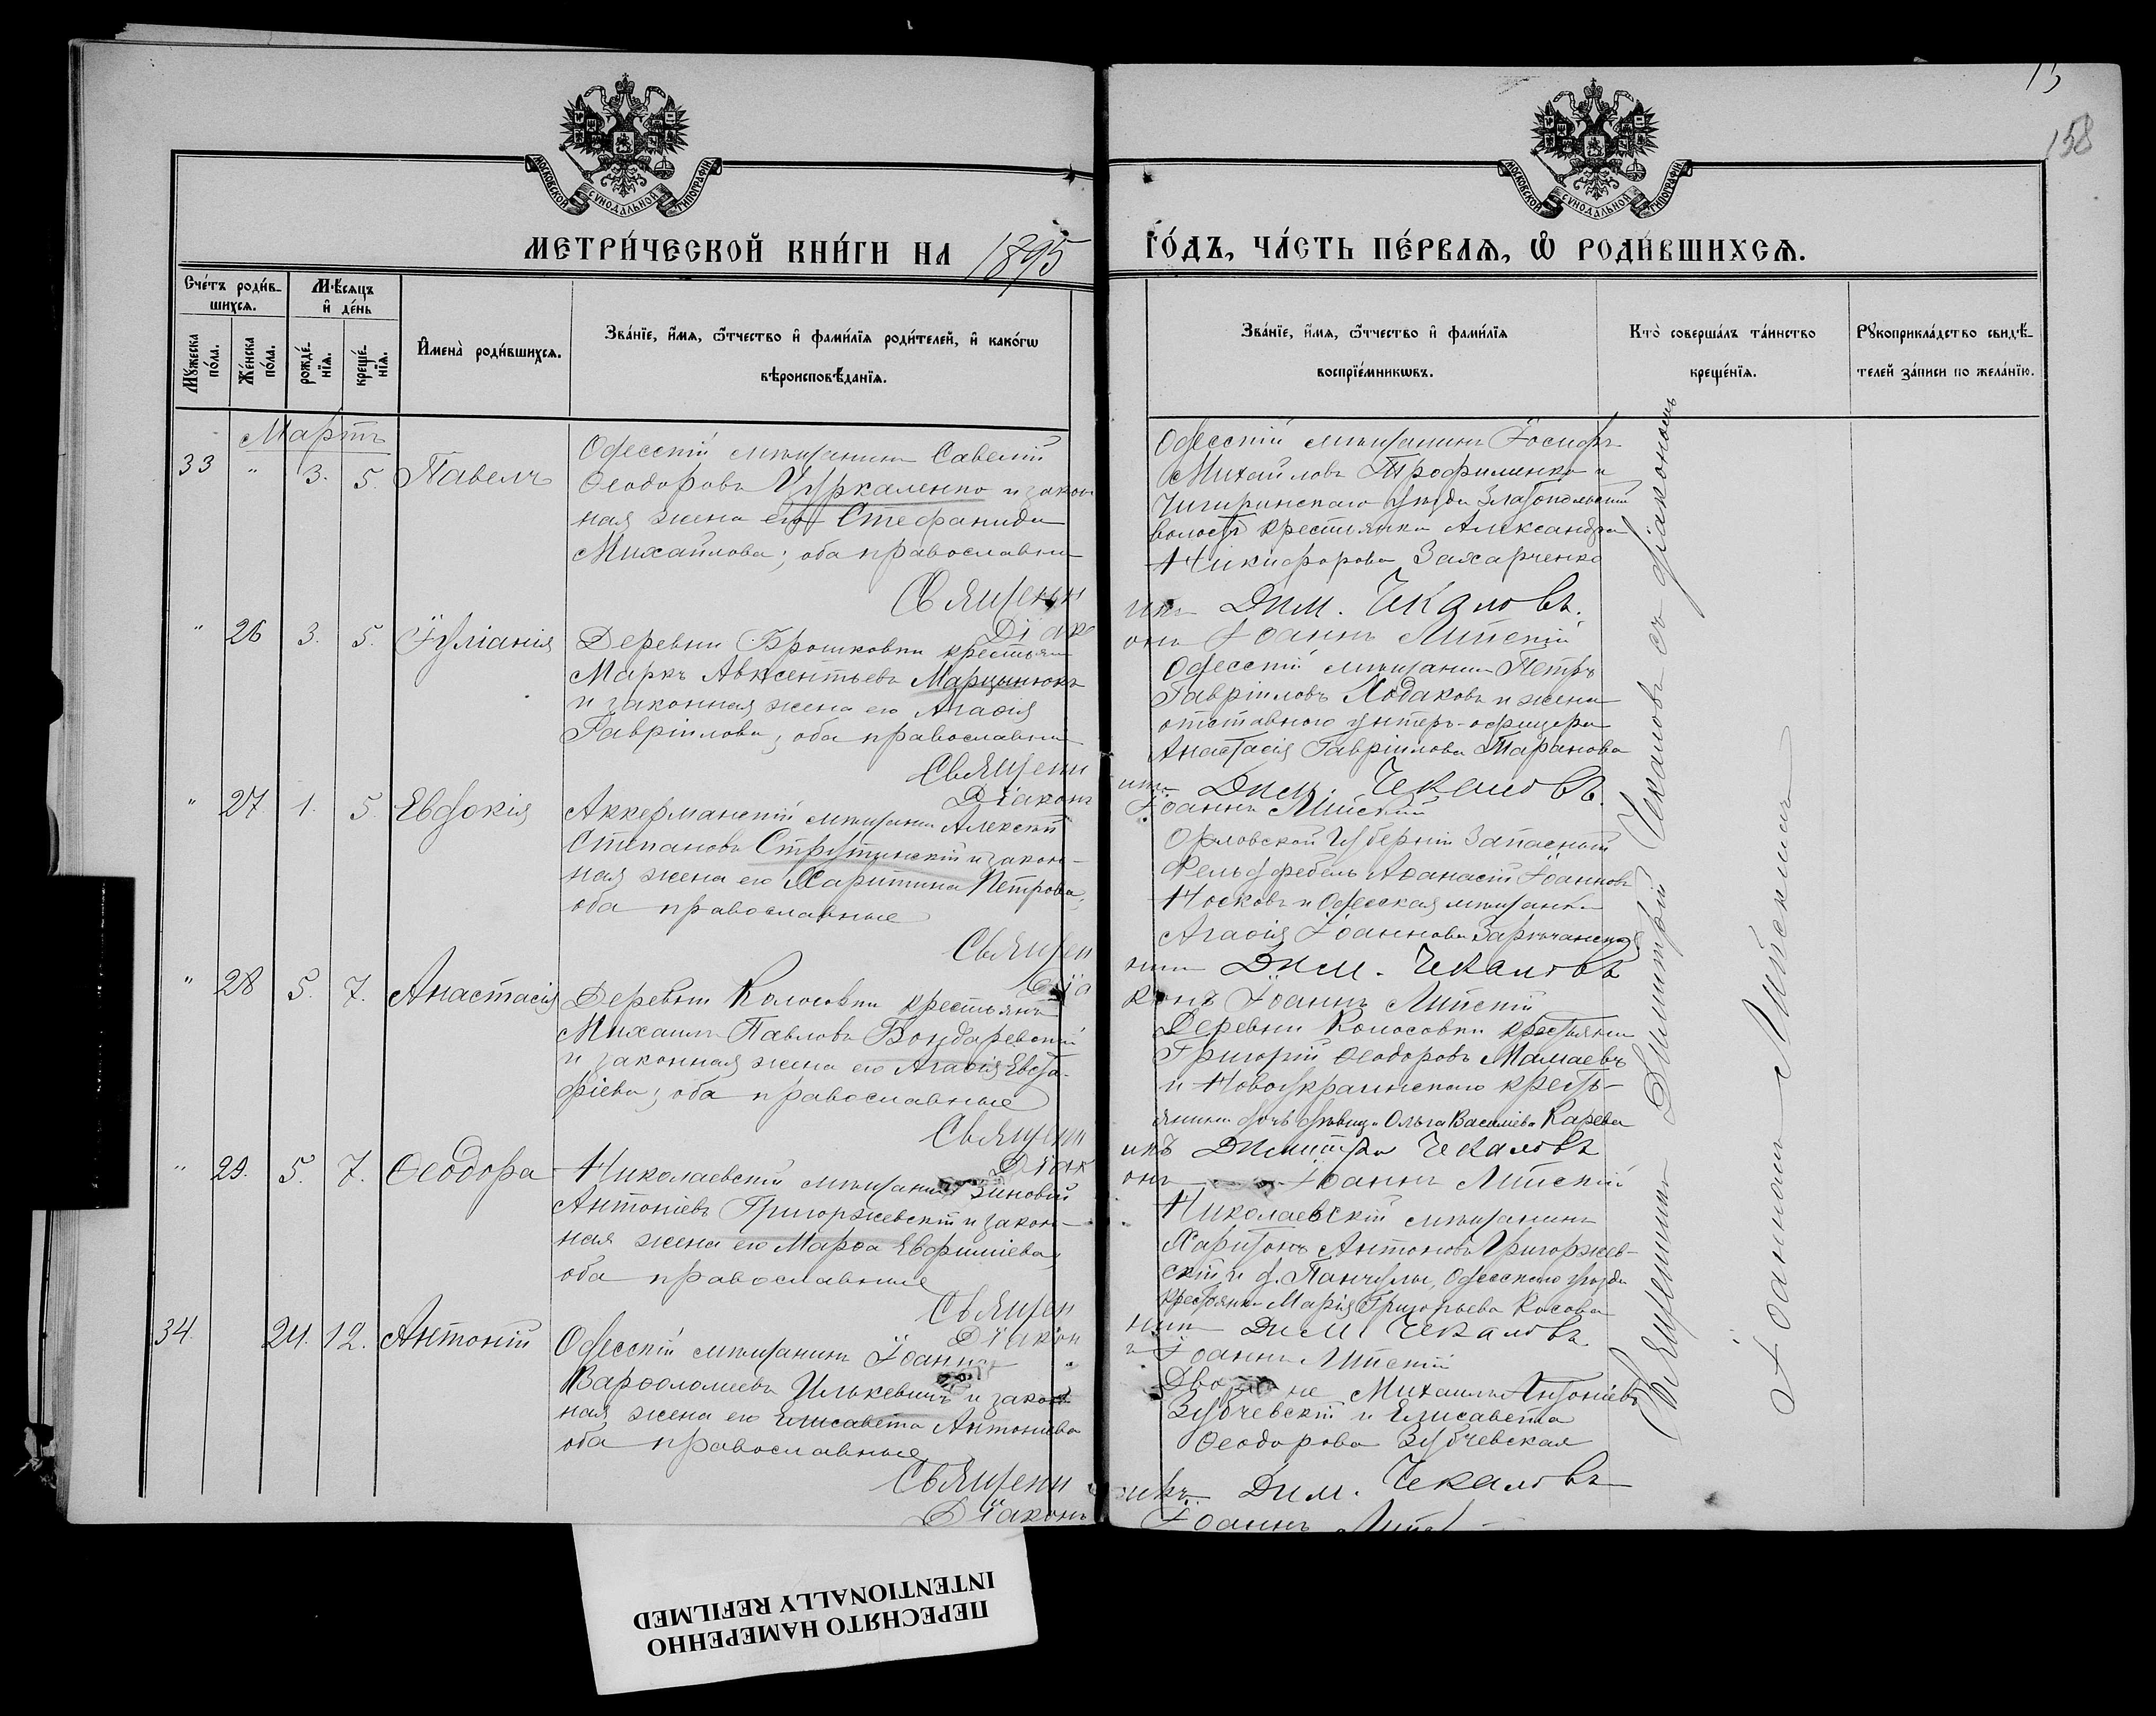 15
158
МОСКОВСКОЙ СѴНОДАЛЬНОЙ ТИПОГРАФІИ
МОСКОВСКОЙ СѴНОДАЛЬНОЙ ТИПОГРАФІИ
МЕТРИ́ЧЕСКОЙ КНИ́ГИ НА 1895 ГО́ДЪ, ЧА́СТЬ ПЕ́РВАѦ, Ѡ҆ РОДИ́ВШИХСѦ.
Сче́тъ роди́в-
шихсѧ.
Мѣ́сяцъ
и҆ де́нь
Мꙋ́жеска
по́ла.
Же́нска
по́ла.
рожде́-
нїѧ.
креще́-
нїѧ.
И҆мена̀ роди́вшихсѧ.
Зва́нїе, и҆́мѧ, ѻ҆́тчество и҆ фами́лїѧ роди́телей, и҆ како́гѡ
вѣроисповѣ́данїѧ.
Зва́нїе, и҆́мѧ, ѻ҆́тчество и҆ фами́лїѧ
воспрїе́мникѡвъ.
Кто̀ соверша́лъ та́инство
креще́нїѧ.
Рꙋкоприкла́дство свидѣ́-
телей за́писи по жела́нїю.
Мартъ
33 " 3. 5. Павелъ
Одесскій мѣщанинъ Савелій
Ѳеодоровъ Цуркаленко и закон
ная жена его Стефанида
Михайлова; оба православны
Одесскій мѣщанинъ Іосифъ
Михайловъ Трофименко и
Чигиринскаго уѣзда Златопольской
волости крестьянка Александра
Никифорова Захарченко
Священникъ Дим. Чекаловъ.
Діаконъ Іоаннъ Липскій
" 26 3. 5. Іуліанія
Деревни Брошковки крестьян
Маркъ Авксентьевъ Марцынюкъ
и законная жена его Агаѳія
Гавріилова; оба православны
Одесскій мѣщанинъ Петръ
Гавріиловъ Ходаковъ и жена
отставного унтеръ-офицера
Анастасія Гавріилова Таранова
Священникъ Дим. Чекаловъ.
Діаконъ Іоаннъ Липскій
" 27 1. 5. Евдокія
Аккерманскій мѣщанинъ Алексѣй
Стпановъ Струтинскій и закон-
ная жена его Харитина Петрова;
оба православные
Орловской губерніи Запасный
Фельдфебель Аѳанасій Іоанновъ
Носковъ и Одесская мѣщанка
Агаѳія Іоаннова Заречанская
Священникъ Дим. Чекаловъ
Діаконъ Іоаннъ Липскій
" 28 5. 7. Анастасія
Деревни Колосовки крестьянинъ
Михаилъ Павловъ Бондаревскій
и законная жена его Агаѳія Евста-
фіева; оба православные
Деревни Колосовки крестьянинъ
Григорій Ѳеодоровъ Мамаевъ
и Новоукраинскаго кресть-
янина дочь дѣвица Ольга Василіева Карева
Священникъ Димитрій Чекаловъ
Діаконъ Іоаннъ Липскій
" 29. 5. 7. Ѳеодора
Николаевскій мѣщанинъ Зиновій
Антоніевъ Григоржевскій и закон-
ная жена его Марѳа Евфиміева,
оба православные
Николаевскій мѣщанинъ
Харитонъ Антоновъ Григоржев-
скій и д. Панчулы, Одесскаго уѣзда
крестьянка Марія Григорьева Косова
Священникъ Дим. Чекаловъ
Діаконъ Іоаннъ Липскій
34. 24. 12. Антоній
Одесскій мѣщанинъ Іоаннъ
Варѳоломеевъ Илькевичъ и закон
ная жена его Елисавета Антоніева
оба православные
Михаилъ Антоніевъ
Зубчевскій и Елисавета
Ѳеодорова Зубчевская
Священникъ Дим. Чекаловъ
Діаконъ Іоаннъ
Священникъ Димитрій Чекаловъ съ діакономъ
Іоанномъ Липскимъ
ПЕРЕСНЯТО НАМЕРЕННО
INTENTIONALLY REFILMED